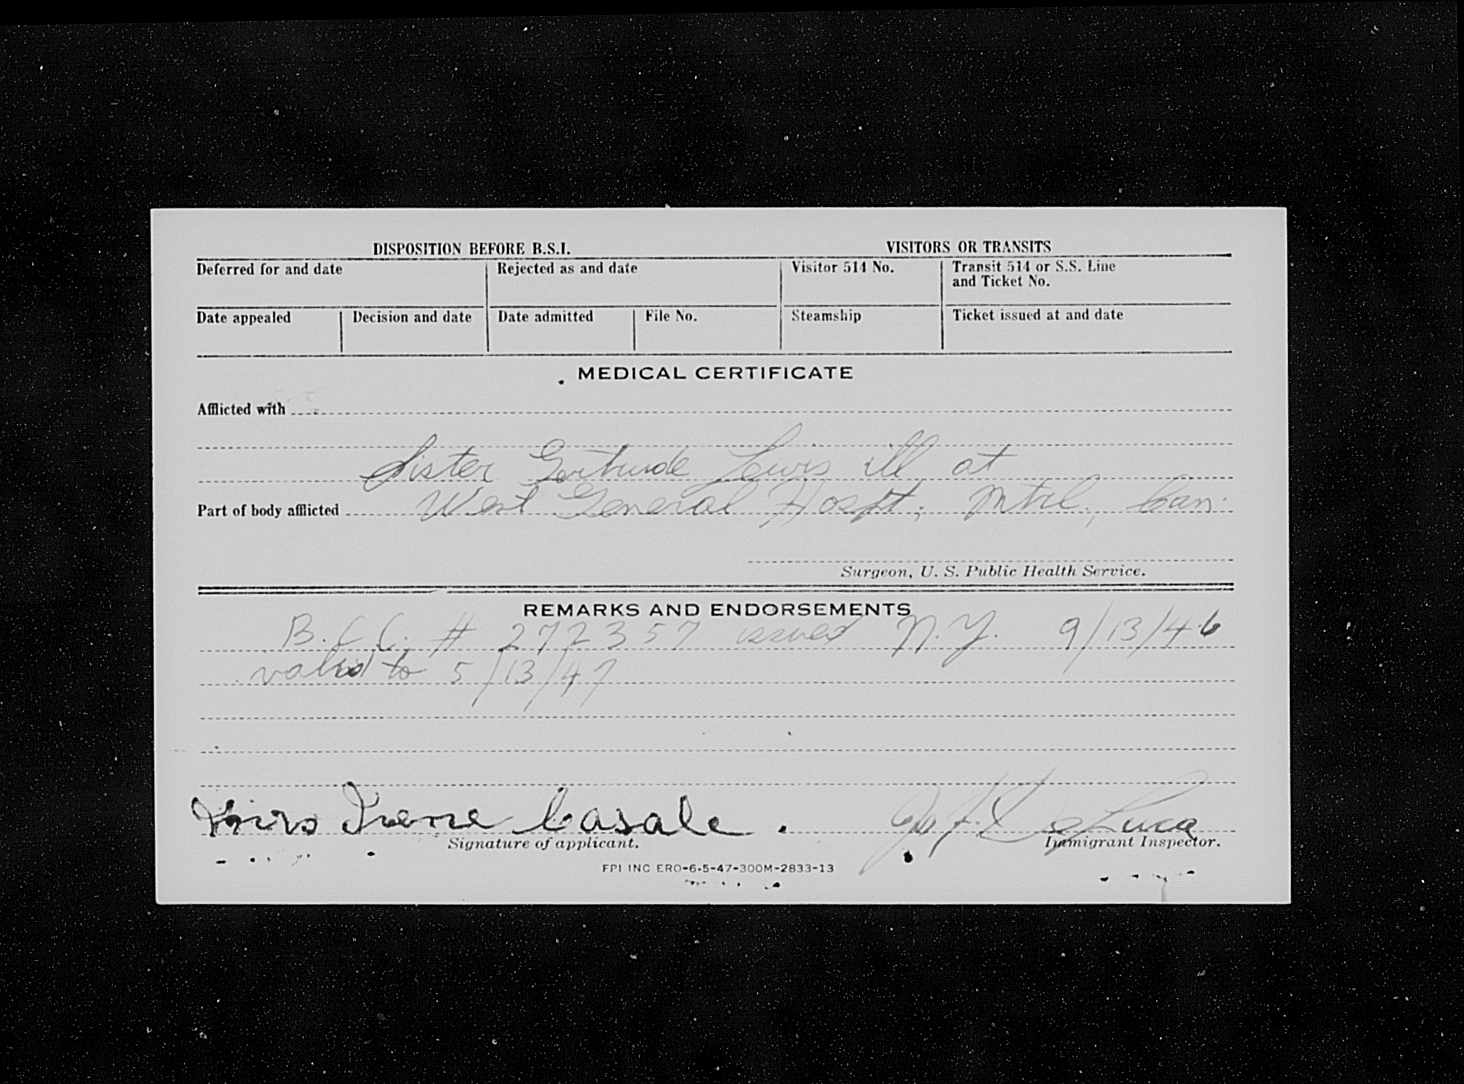 DISPOSITION BEFORE B.S.I. VISITORS OR TRANSITS
Deferred for and date Rejected as and date Visitor 514 No. Transit 514 or S.S. Line
and Ticket No.
Date appealed Decision and date Date admitted File No. Steamship Ticket issued at and date
MEDICAL CERTIFICATE
Afflicted with
Sister Gertrude Lewis ill at
Part of body afflicted West General Hospt. Mtrl., Can.
Surgeon, U. S. Public Health Service.
REMARKS AND ENDORSEMENTS
B.C.C. # 272357 issued N.Y. 9/13/46
valid to 5/13/47
Mrs Irene Casale. De Luca
Signature of applicant. Immigrant Inspector.
FPI INC ERO-6-5-47-300M-2833-13